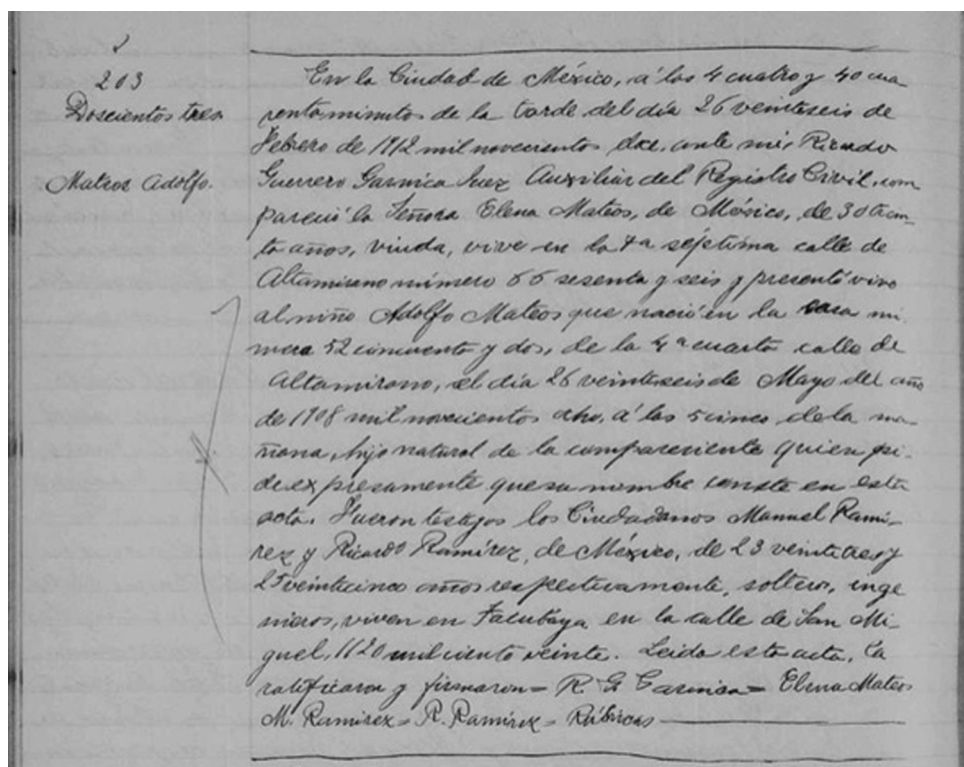 203
Doscientos tres
Mateos Adolfo.
En la Ciudad de México, á las 4 cuatro y 40 cua
renta minutos de la tarde del día 26 veintiseis de
Febrero de 1912 mil novecientos doce, ante mí, Ricardo
Guerrero Garnica Juez Auxiliar del Registro Civil, com
pareció la Señora Elena Mateos, de México, de 30 trein-
ta años, viuda, vive en la 7a séptima calle de
Altamirano número 66 sesenta y seis y presentó vivo
al niño Adolfo Mateos que nació en la casa nú
mero 52 cincuenta y dos, de la 4a cuarta calle de
Altamirano, el día 26 veintiseis de Mayo del año
de 1908 mil novecientos ocho, á las 5 cinco de la ma-
ñana, hijo natural de la compareciente quien pi-
de expresamente que su nombre conste en esta
acta. Fueron testigos los Ciudadanos Manuel Rami-
rez y Ricardo Ramírez, de México, de 23 veintitres y
25 veinticinco años respectivamente, solteros, inge
nieros, viven en Tacubaya en la calle de San Mi-
guel, 1120 mil ciento veinte. Leida esta acta, la
ratificaron y firmaron = R. G Garnica = Elena Mateos
M. Ramirez = R. Ramírez = Rúbricas